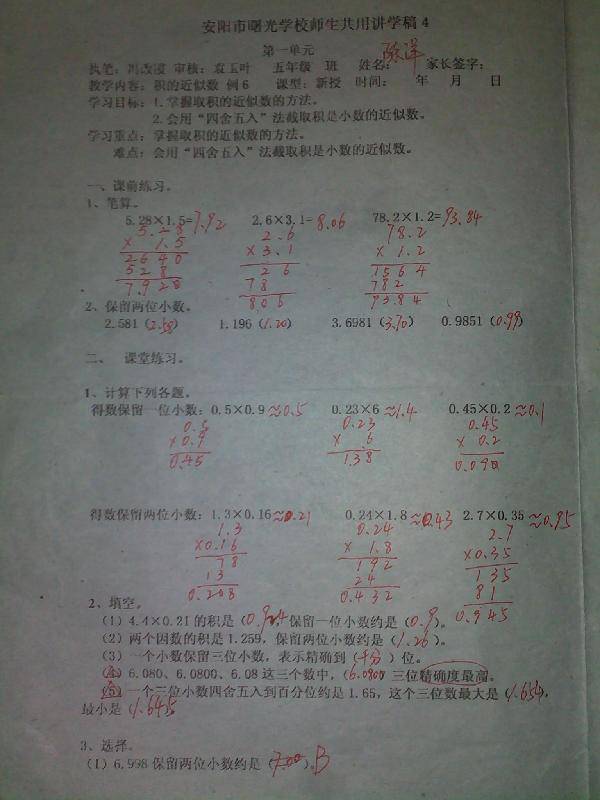 安阳市曙光学校师生共用讲学稿4
第一单元
执笔：冯改波 审核：袁玉叶 五年级 班 姓名： 家长签字：
教学内容：积的近似数 例6 课型：新授 时间： 年 月 日
学习目标：1.掌握取积的近似数的方法。
2.会用“四舍五入”法截取积是小数的近似数。
学习重点：掌握取积的近似数的方法。
难点：会用“四舍五入”法截取积是小数的近似数。
一、课前练习。
1、笔算。
5.28×1.5=7.92 2.6×3.1=8.06 78.2×1.2=93.84
5.28 2.6 78.2
×1.5 ×3.1 ×1.2
2640 26 1564
528 78 782
7.920 806 93.84
2、保留两位小数。
2.581（2.58） 1.196（1.20） 3.6981（3.70） 0.9851（0.99）
二、 课堂练习。
1、计算下列各题。
得数保留一位小数：0.5×0.9≈0.5 0.23×6≈1.4 0.45×0.2≈0.1
0.5 0.23 0.45
×0.9 ×6 ×0.2
0.45 1.38 0.090
得数保留两位小数：1.3×0.16≈0.21 0.24×1.8≈0.43 2.7×0.35≈0.95
1.3 0.24 2.7
×0.16 ×1.8 ×0.35
78 192 135
13 24 81
0.208 0.432 0.945
2、填空。
（1）4.4×0.21的积是（0.924保留一位小数约是（0.9）。
（2）两个因数的积是1.259，保留两位小数约是（1.26）。
（3）一个小数保留三位小数，表示精确到（千分）位。
6.080、6.0800、6.08这三个数中，（6.0800三位精确度最高。
一个三位小数四舍五入到百分位约是1.65，这个三位数最大是（1.654，
最小是（1.645
3、选择。
（1）6.998保留两位小数约是（7.00）。B